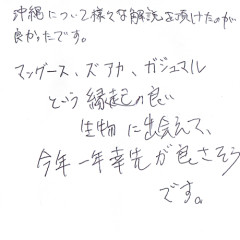 沖縄について様々な解説を頂けたのが
良かったです。
マングース、ズアカ、ガジュマル
という縁起の良い
生物に出会えて、
今年一年幸先が良さそう
です。